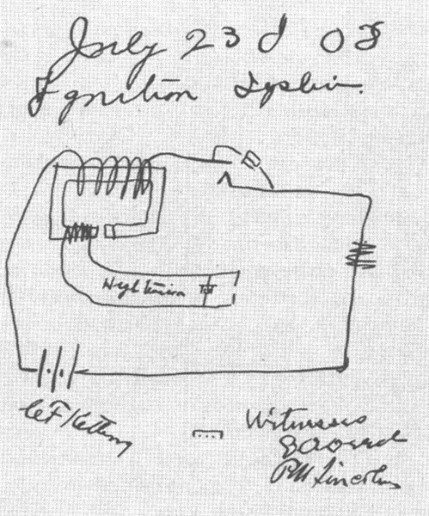 July 23d 08
Ignition System.
High tension
CF Kettering
Witnesses
P M Lincoln